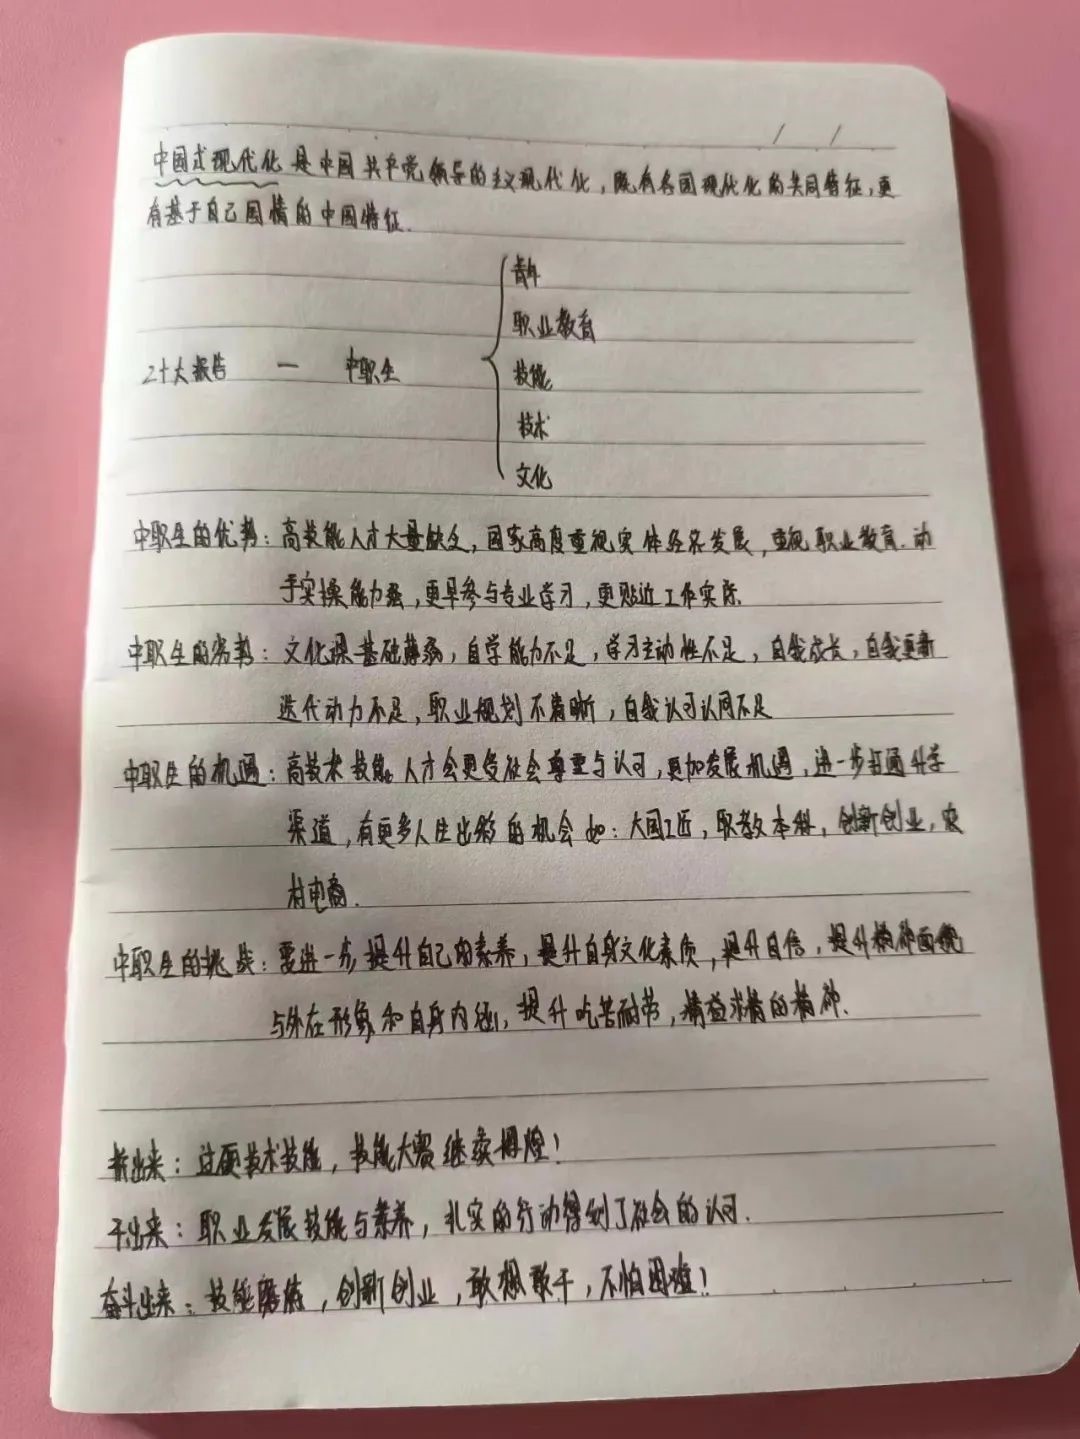 中国式现代化是中国共产党领导的主义现代化，既有各国现代化的共同特征，更
有基于自己国情的中国特征.
青年
职业教育
二十大报告 — 中职生
技能
技术
文化
中职生的优势：高技能人才大量缺乏，国家高度重视实体经济发展，重视职业教育.动
手实操能力强，更早参与专业学习，更贴近工作实际.
中职生的劣势：文化课基础薄弱，自学能力不足，学习主动性不足，自我成长，自我更新
迭代动力不足，职业规划不清晰，自我认可认同不足
中职生的机遇：高技术技能人才会更受社会尊重与认可，更加发展机遇，进一步打通升学
渠道，有更多人生出彩的机会 如：大国工匠，职教本科，创新创业，农
村电商.
中职生的挑战：要进一步提升自己的素养，提升自身文化素质，提升自信，提升精神面貌
与外在形象和自身内涵，提升吃苦耐劳，精益求精的精神.
拼出来：过硬技术技能，技能大赛继续辉煌！
干出来：职业发展技能与素养，扎实的行动得到了社会的认可.
奋斗出来：技能磨练，创新创业，敢想敢干，不怕困难！